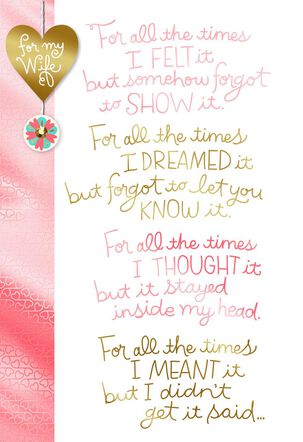 for my
Wife
For all the times
I FELT it
but somehow forgot
to SHOW it.
For all the times
I DREAMED it
but forgot to let you
KNOW it.
For all the times
I THOUGHT it
but it stayed
inside my head.
For all the times
I MEANT it
but I didn't
get it said...